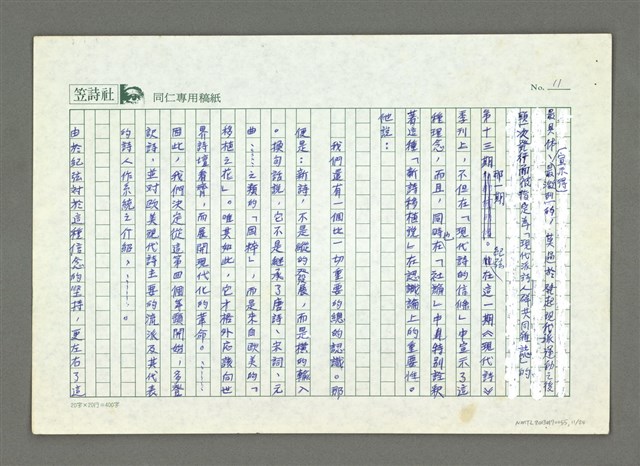 笠詩社 同仁專用稿紙
No. 11
(宣示傳)
最具體、最激進的，莫過於發起現代派運動之後
第一次發行而被指定為「現代派詩人群共同雜誌」的
那一期 紀弦
第十三期。在這一期《現代詩》
季刊上，不但在「現代詩的信條」中宣示了這
種理念，而且，同時也在「社論」中具特別詮釋
著這種「新詩移植說」在認識論上的重要性。
他說：
我們還有一個比一切重要的總的認識。那
便是：新詩，不是縱的發展，而是橫的輸入
。換句話說，它不是繼承了唐詩、宋詞、元
曲……之類的「國粹」，而是來自歐美的「
移植之花」。唯其如此，它才格外應該向世
界詩壇看齊，而展開現代化的革命。……
因此，我們決定從這第四個年頭開始，多登
譯詩，並對歐美現代詩主要的流派及其代表
的詩人作系統之介紹。
由於紀弦對於這種信念的堅持，更左右了這
20字×20行=400字